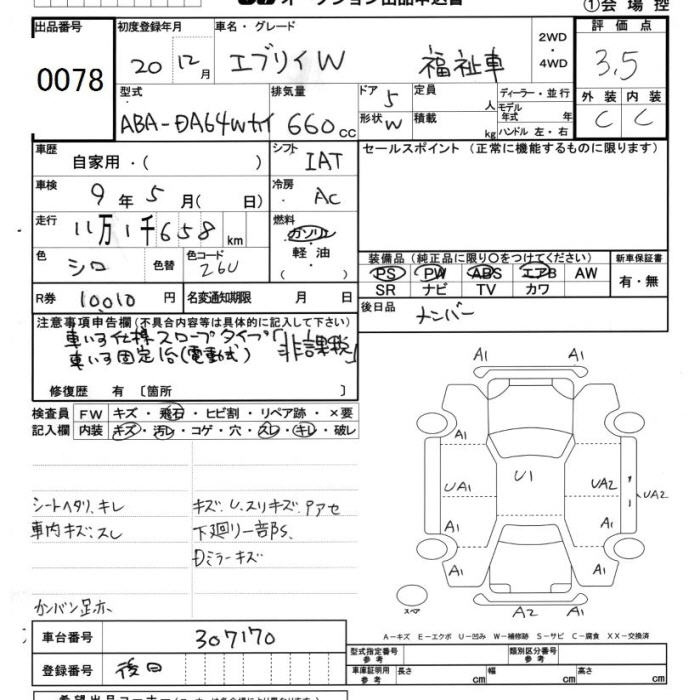 オークション出品申込書 ①会場控
出品番号 初度登録年月 車名・グレード 2WD・4WD 評価点
0078 20 12月 エブリイW 福祉車 3.5
型式 排気量 ドア 5 定員 人 ディーラー・並行 外装 内装
ABA-DA64Wカイ 660cc 形状 W 積載 kg モデル年式 年式 ハンドル 左・右 C C
車歴 自家用・( ) シフト IAT セールスポイント (正常に機能するものに限ります)
車検 9年5月( 日) 冷房 AC
走行 11万1千658km 燃料 ガソリン・軽油・( )
色 シロ 色替 色コード 26U 装備品(純正品に限り○をつけてください) 新車保証書
PS PW ABS エアB AW 有・無
SR ナビ TV カワ
R券 10,010円 名変通知期限 月 日 後日品 ナンバー
注意事項申告欄(不具合内容等は具体的に記入して下さい)
車いす仕様スロープタイプ「非課税」
車いす固定台(電動式)
修復歴 有 〔箇所 〕
検査員記入欄 FW キズ・飛石・ヒビ割・リペア跡・×要
内装 キズ・汚レ・コゲ・穴・スレ・キレ・破レ
A1 A1
A1 A1
UA1 U1 UA2 UA2
A1 A1
A1 A1
A2 A1
スペア
シートヘタリ.キレ キズ.U.スリキズ.Pアセ
車内キズ:スレ 下廻り一部S.
Dミラーキズ
カンバン足ホ
A-キズ E-エクボ U-凹み W-補修跡 S-サビ C-腐食 XX-交換済
車台番号 307170 型式指定番号 参考 類別区分番号 参考
登録番号 後日 車庫証明用 参考 長さ cm 幅 cm 高さ cm